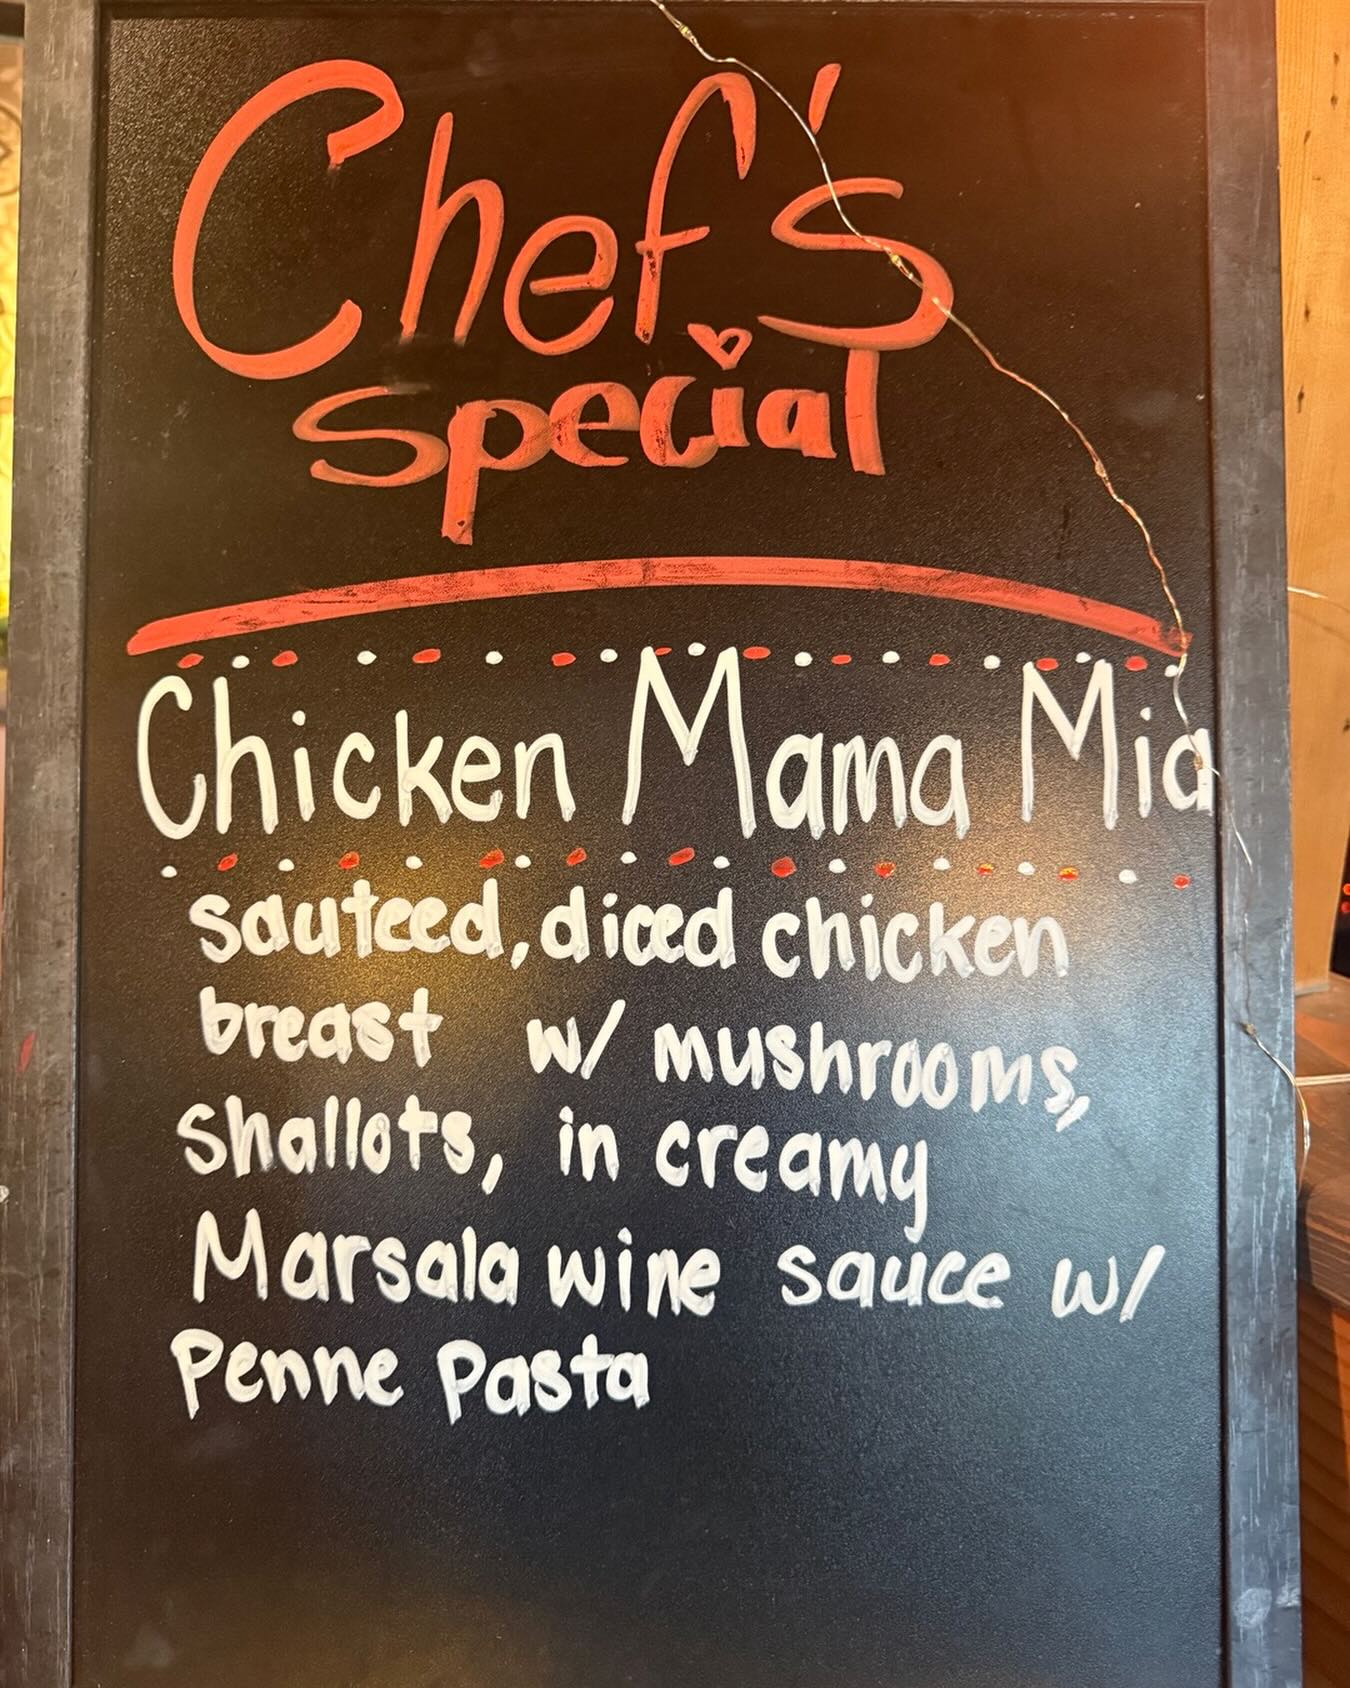 Chef's
special
Chicken Mama Mia
sauteed, diced chicken
breast w/ mushrooms,
shallots, in creamy
Marsala wine sauce w/
Penne Pasta